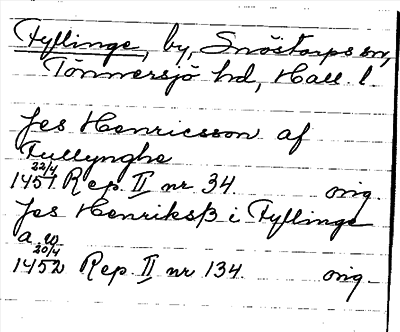 Fyllinge, by, Snöstorps sn,
Tönnersjö hd, Hall. l.
Jes Henricsson af
Fullynghe
22/4
1451 Rep. II nr 34. orig.
Jes Henriksß i Fyllinge
a. w.
20/4
1452 Rep. II nr 134. orig.